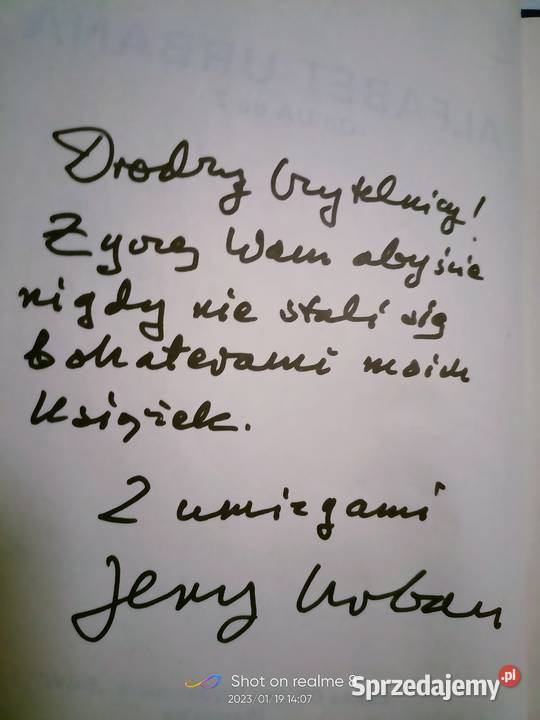 ALFABET URBANA
Drodzy Czytelnicy!
Życzę Wam abyście
nigdy nie stali się
bohaterami moich
książek.
Z umizgami
Jerzy Urban
Shot on realme 8
2023/01/19 14:07
Sprzedajemy.pl